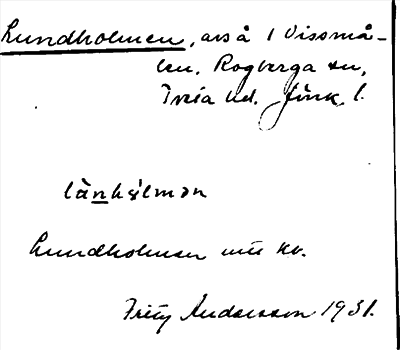 Lundholmen, avs å 1 Vissmå-
len. Rogberga sn,
Tveta hd. Jönk. l.
lùnhʹålmən
Lundholmen uti kv.
Frity Andersson 1931.